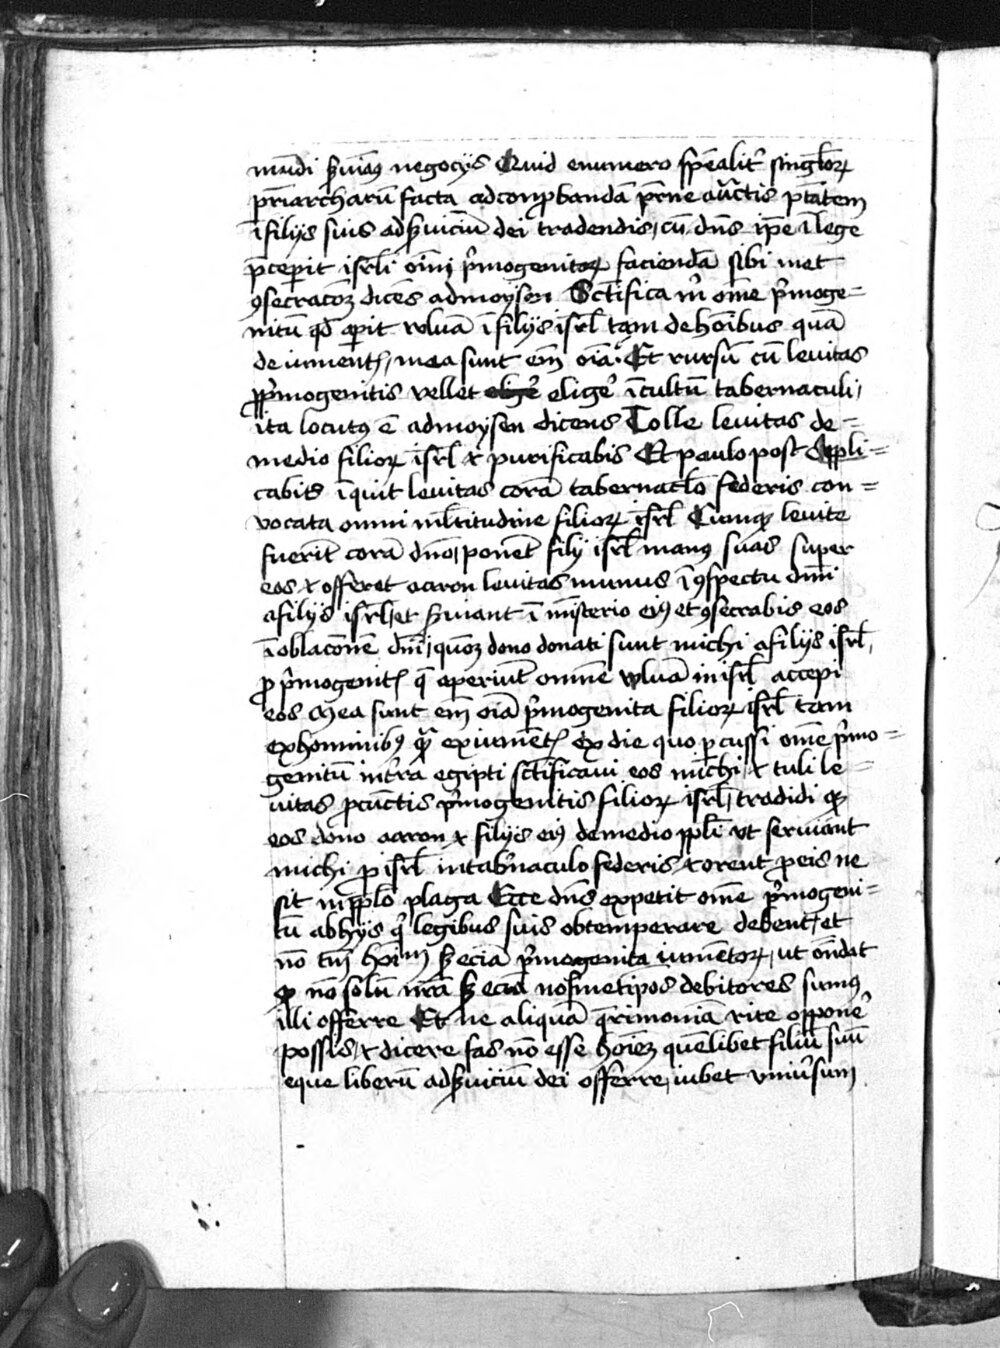 mūdi ẜuim9 negocijs Quid enumero spēalit᷑ singl̄oꝝ
p̄riarcharū facta ad conꝓbandā p̄rne auctīs ptātem
ī filijs suis ad ẜuiciū dei tradendis, cū dn̄s ip̄e ī lege
p̄ceperit isrl̄i oīm p̓mogenitoꝝ faciendā sibi met
ꝯsecracōꝫ dicēs ad moysen Sctīfica m̓ om̄e p̓moge=
nitū qd̄ aꝑit wluā ī filijs isrl̄ tam de hoībus quā
de iument̄, mea sunt em̄ oīa. Et rursū cū leuitas
ꝓ p̓mogenitis vellet elige᷑ ī cultū tabernaculi,
ita locut9 ē ad moysen dicens Tolle leuitas de=
medio filioꝝ isrl̄ ⁊ purificabis Et paulo post Appli=
cabis īquit leuitas corā tabernacl̄o federis con=
vocata omni ml̄titudine filioꝝ isrl̄ Cumqꝫ leuite
fuerīt corā dn̄o, ponēt filij isrl̄ man9 suas super
eos ⁊ offeret aaron leuitas munus ī ꝯspectu dn̄i
a filijs isrl̄, et ẜuiant ī mīsterio ei9 et ꝯsecrabis eos
ī oblacōnē dn̄i, quōꝫ dono donati sunt michi a filijs isrl̄,
ꝓ p̓mogenit̄ q̄ aperiūt omnē wluā in isrl̄ accepi
eos Mea sunt em̄ oīa p̓mogenita filioꝝ isrl̄ tam
ex hominibꝰ qᷓ ex iument̄ Ex die quo ꝑcussi om̄e p̓mo=
genitū in t̓ra egipti sctīficaui eos michi, ⁊ tuli le=
uitas ꝓ cūctis p̓mogenitis filioꝝ isrl̄, tradidi qꝫ
eos dono aaron ⁊ filijs ei9 de medio ppl̄i vt seruiant
michi ꝓ isrl̄ in tab̓naculo federis ⁊ orent ꝓ eis ne
sit in ppl̄o plaga Ecce dn̄s expetit om̄e p̓mogeni=
tū ab hijs q̓ legibus suis obtemperare debent, et
nō tm̄ hoīm ẜ eciā p̓mogenita iumētoꝝ, ut ōndat
qꝫ nō solū nr̄a ẜ eciā nosmetipos debitores sum9
illi offerre Et ne aliquā q̄rimoniā rite oppone᷑
possis, ⁊ dicere fas nō esse hoīeꝫ quēlibet filiū suū
eque liberū ad ẜuiciū dei offerre, iubet vniu᷑sum